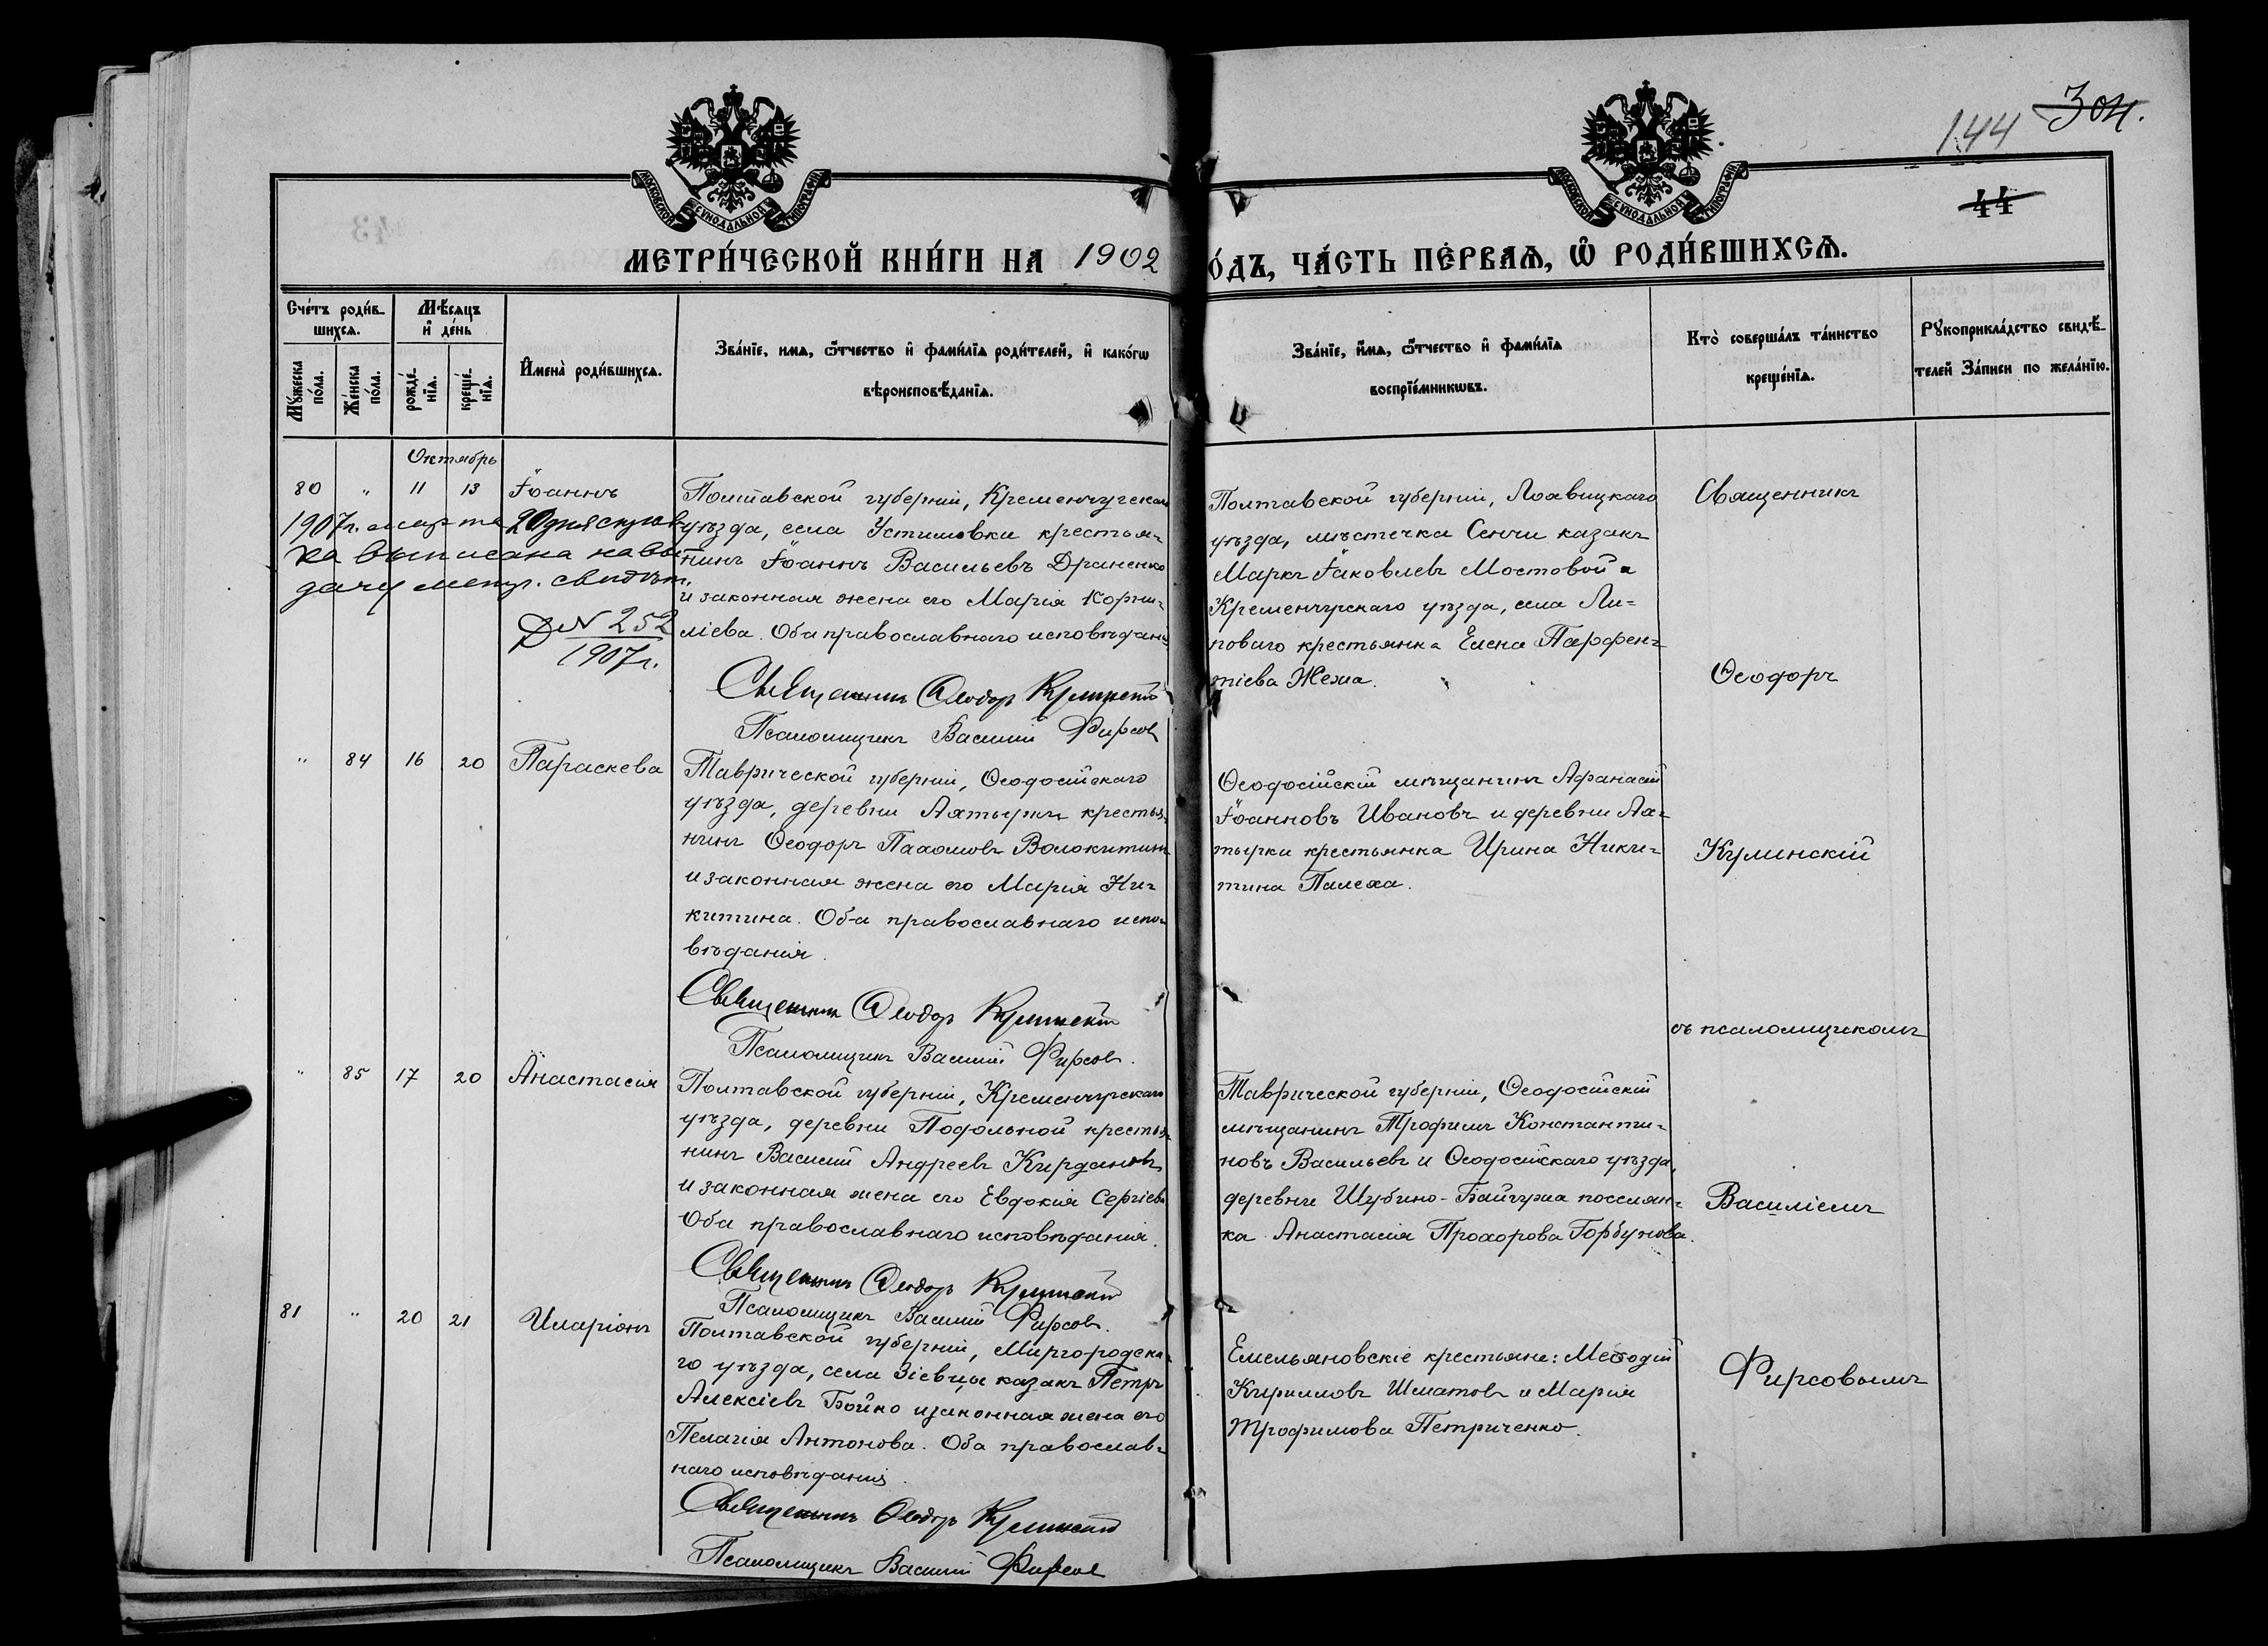 144 304.
44
МОСКОВСКОЙ СУНОДАЛЬНОЙ ТИПОГРАФІИ
МОСКОВСКОЙ СУНОДАЛЬНОЙ ТИПОГРАФІИ
МЕТРИ́ЧЕСКОЙ КНИ́ГИ НА 1902
О́ДЪ, ЧА́СТЬ ПЕ́РВАЯ, Ѡ҆ РОДИ́ВШИХСЯ.
Сче́тъ роди́в-
шихся.
Мꙋ́жеска по́ла.
Же́нска по́ла.
Мѣ́сяцъ
и҆ де́нь
рожде́-
нїя.
креще́-
нїя.
И҆мена̀ роди́вшихся.
Зва́нїе, имя, ѿтчество и҆ фами́лїя роди́телей, и҆ како́гѡ
вѣроисповѣ́данїя.
Зва́нїе, и҆мя, ѿтчество и҆ фами́лїя
воспрїе́мникѡвъ.
Кто̀ соверша́лъ та́инство
креще́нїя.
Рꙋкоприкла́дство свидѣ́-
телей За́писи по жела́нїю.
Октябрь
80 " 11 13 Іоаннъ
1907 г. марта 20 дня справ-
ка выписана на вы-
дачу метр. свидѣт.
№ 252
1907 г.
Полтавской губерніи, Кременчугскаго
уѣзда, села Устимовки крестья-
нинъ Іоаннъ Васильевъ Драненко
и законная жена его Марія Корни-
ліева. Оба православнаго исповѣданія
Священникъ Ѳеодоръ Кулинскій
Псаломщикъ Василій Фирсовъ
Полтавской губерніи, Лохвицкаго
уѣзда, мѣстечка Сенчи казакъ
Маркъ Іаковлевъ Мостовой и
Кременчугскаго уѣзда, села Ли-
поваго крестьянка Елена Парфен-
тіева Жежа.
Священникъ
Ѳеодоръ
" 84 16 20 Параскева
Таврической губерніи, Ѳеодосійскаго
уѣзда, деревни Ахтырки крестья-
нинъ Ѳеодоръ Пахомовъ Волокитинъ
и законная жена его Марія Ни-
китина. Оба православнаго испо-
вѣданія.
Священникъ Ѳеодоръ Кулинскій
Псаломщикъ Василій Фирсовъ.
Ѳеодосійскій мѣщанинъ Афанасій
Іоанновъ Ивановъ и деревни Ах-
тырки крестьянка Ирина Ники-
тина Палеха.
Кулинскій
съ псаломщикомъ
" 85 17 20 Анастасія
Полтавской губерніи, Кременчугскаго
уѣзда, деревни Подольной крестья-
нинъ Василій Андреевъ Кирданъ
и законная жена его Евдокія Сергіева
Оба православнаго исповѣданія.
Священникъ Ѳеодоръ Кулинскій
Псаломщикъ Василій Фирсовъ.
Таврической губерніи, Ѳеодосійскій
мѣщанинъ Трофимъ Константи-
новъ Васильевъ и Ѳеодосійскаго уѣзда,
деревни Шубино-Байгужа поселян-
ка Анастасія Прохорова Горбунова.
Василіемъ
81 " 20 21 Иларіонъ
Полтавской губерніи, Миргородска-
го уѣзда, села Зіевцы казакъ Петръ
Алексіевъ Бойко и законная жена его
Пелагія Антонова. Оба православ-
наго исповѣданія.
Священникъ Ѳеодоръ Кулинскій
Псаломщикъ Василій Фирсовъ
Емельяновскіе крестьяне: Меѳодій
Кирилловъ Шматовъ и Марія
Трофимова Петриченко.
Фирсовымъ